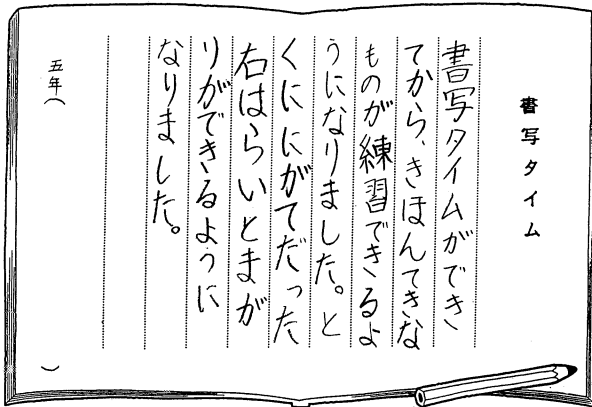 書写タイム
書写タイムができ
てから、きほんてきな
ものが練習できるよ
うになりました。と
くににがてだった
右はらいとまが
りができるように
なりました。
五年(　)